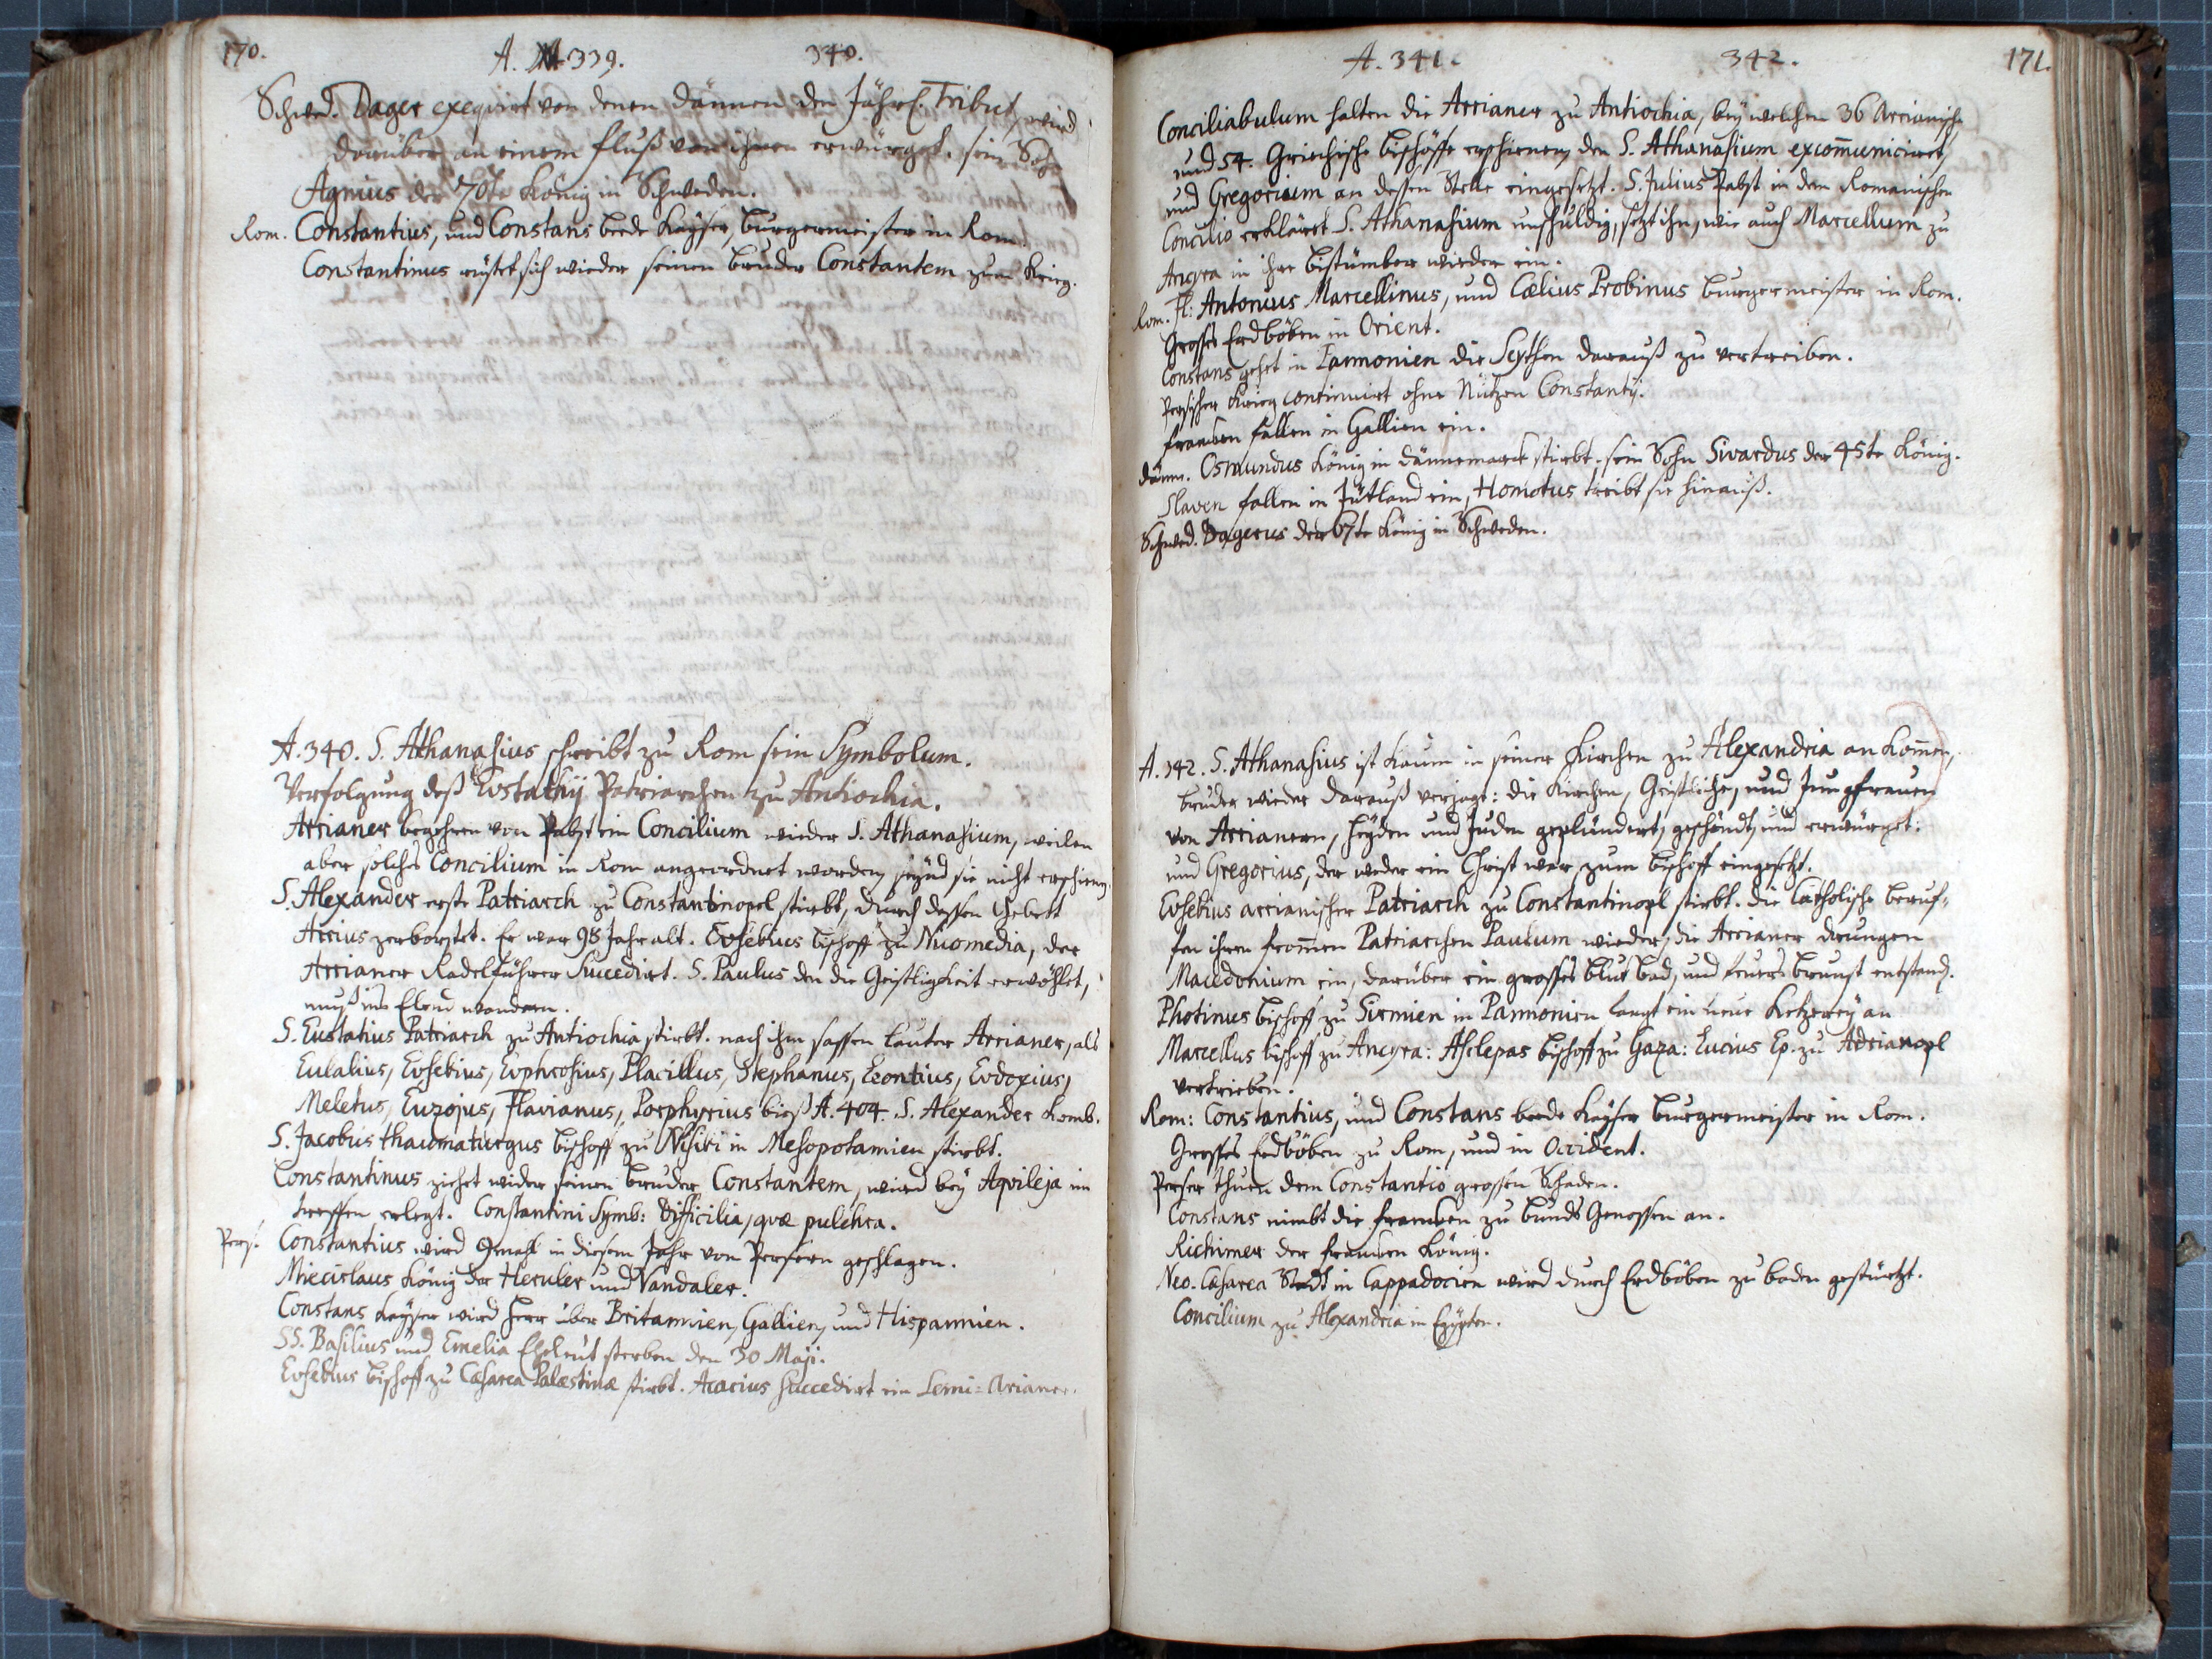 170. A. 339. 340.
Schwed. Dager exequirt von denen Dännen den Jährl. Tribut, wird
darüber an einem fluß von ihnen erwürget. sein Sohn
Agnius der 70te König in Schweden.
Rom. Constantius, und Constans beede Kayser, burgermeister in Rom.
Constantinus rüstet sich wieder seinen bruder Constantem zum Krieg.
A. 340. S. Athanasius schreibt zu Rom sein Symbolum.
Verfolgung deß Evstathij Patriarchen zu Antiochia.
Arrianer begehren von Pabst ein Concilium wieder S. Athanasium, weilen
aber solches Concilium in Rom angeordnet worden, seynd sie nicht erschienen.
S. Alexander erste Patriarch zu Constantinopel stirbt, durch dessen Gebett
Arrius zerborstet. Er war 98 Jahr alt. Evsebius bischoff zu Nicomedia, der
Arrianer Radelführer Succedirt. S. Paulus den die Geistligkeit erwöhlet,
muß ins Elend wandern.
S. Eustatius Patriarch zu Antiochia stirbt. nach ihm sassen lauter Arrianer, als
Eulalius, Evsebius, Evphrosius, Placillus, Stephanus, Leontius, Evdoxius,
Meletus, Euzojus, Flavianus, Porphyrius biß A. 404. S. Alexander komb.
S. Jacobus thaumaturgus bischoff zu Nisibi in Mesopotamien stirbt.
Constantinus ziehet wider seinen bruder Constantem, wird bey Aqvileja im
treffen erlegt. Constantini Symb: Difficilia, qvæ pulchra.
Pers. Constantius wird 9mahl in diesem Jahr von Persern geschlagen.
Miecislaus König der Heruler und Vandaler.
Constans Kayser wird Herr über Britannien, Gallien, und Hispannien.
SS. Basilius und Emelia Eheleut sterben den 30 Maji.
Evsebius bischoff zu Cæsarea Palæstinæ stirbt. Acacius succedirt ein Semi-Arianer.
A. 341. 342. 171.
Conciliabulum halten die Arrianer zu Antiochia, bey welchem 36 Arrianische
und 54. Griechische bischöffe erschienen, den S. Athanasium excom̄uniciret,
und Gregorium an dessen Stelle eingesetzt. S. Julius Pabst in dem Romanischen
Concilio erkläret S. Athanasium unschuldig, setzt ihn, wie auch Marcellum zu
Ancyra in ihre bistümber wieder ein.
Rom. Fl: Antonius Marcellinus, und Cælius Probinus burgermeister in Rom.
Grosses Erdböben in Orient.
Constans gehet in Pannonien die Scythen darauß zu vertreiben.
Persischer Krieg continuirt ohne Nützen Constantij.
francken fallen in Gallien ein.
Dänn. Osmundus König in Dännemarck stirbt. sein Sohn Sivardus der 45te König.
Slaven fallen in Jütland ein, Homotus treibt sie hinauß.
Schwed. Dagerus der 67te König in Schweden.
A. 342. S. Athanasius ist kaum in seiner Kirchen zu Alexandria ankom̄en,
wieder darauß verjagt: die Kirchen, Geistliche, und Jungfrauen
von Arrianern, Heyden und Juden geplündert, geschändt, und erwürget:
und Gregorius, der weder ein Christ war, zum bischoff eingesetzt.
Evsebius arrianischer Patriarch zu Constantinopl stirbt. die Catholische beruf-
fen ihren from̄en Patriarchen Paulum wieder, die Arrianer drungen
Macedonium ein, darüber ein grosses blut bad, und feuers brunst entstand.
Photinus bischoff zu Sirmien in Pannonien fangt ein neue Ketzerey an
Marcellus bischoff zu Ancyra: Asclepas bischoff zu Gaza: Lucius Ep. zu Adrianopl
vertrieben.
Rom: Constantius, und Constans beede Kayser burgermeister in Rom.
Grosses Erdböben zu Rom, und in Occident.
Perser thuen dem Constantio grossen Schaden.
Constans nimbt die francken zu bunds Genossen an.
Richimer der francken König.
Neo-Cæsarea Stadt in Cappadocien wird durch Erdböben zu boden gestürtzt.
Concilium zu Alexandria in Egÿpten.